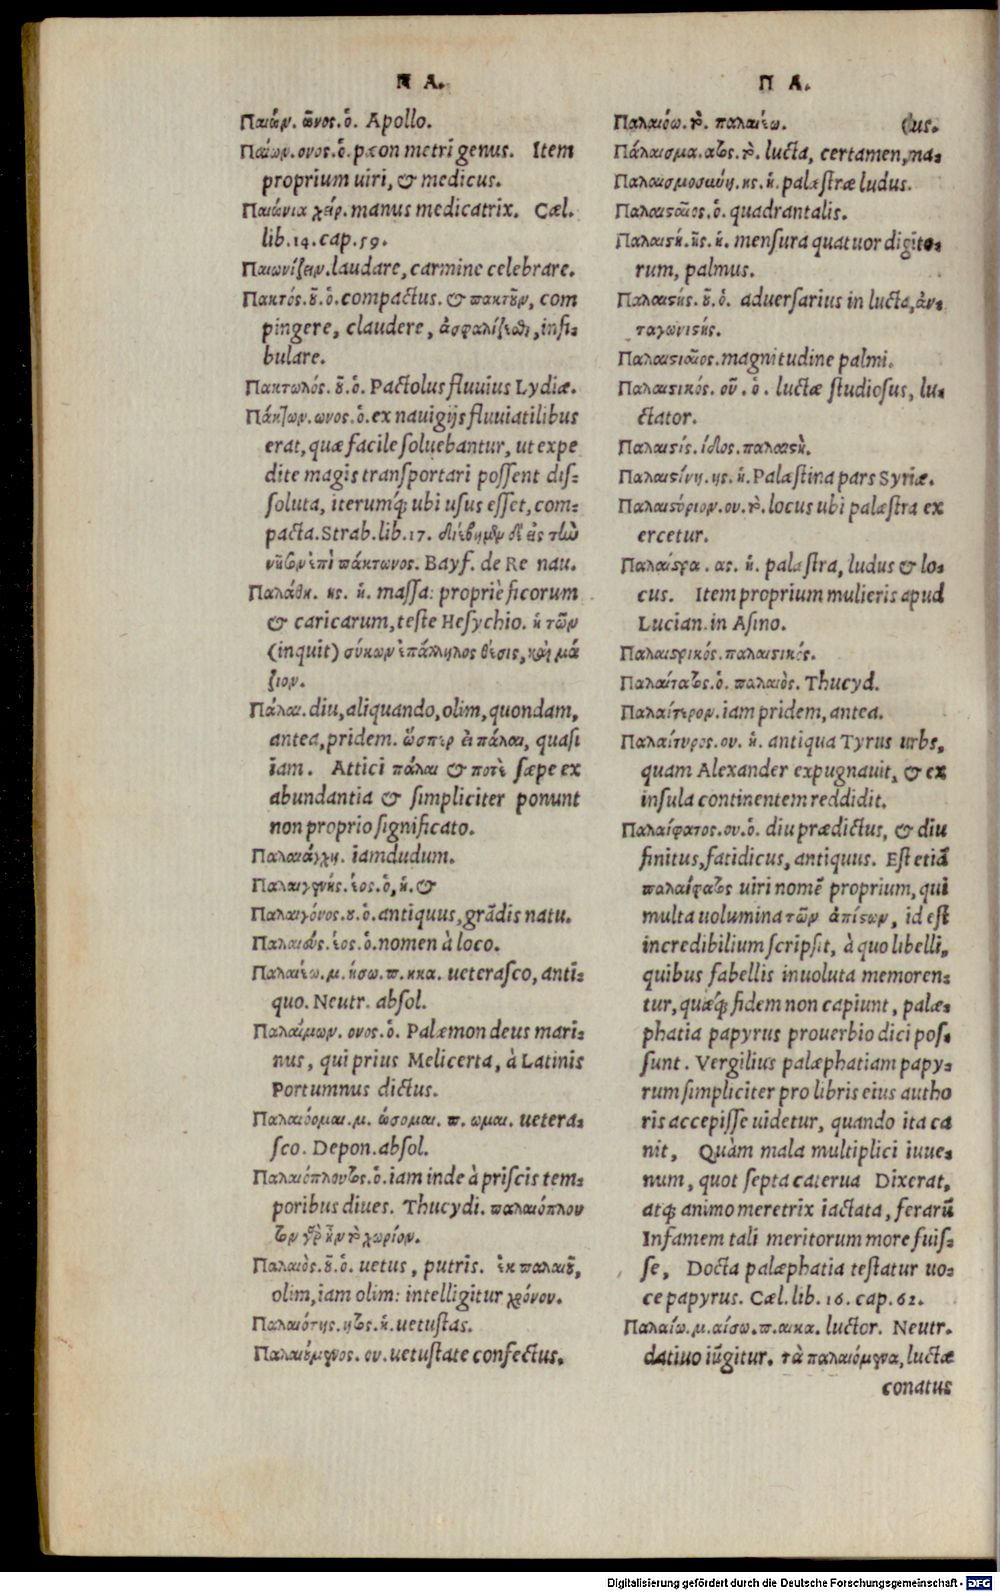 Π Α.
Παιών. ῶνος. ὁ. Apollo.
Παίων. ονος. ὁ. pæon metri genus. Item
proprium uiri, & medicus.
Παιώνια χείρ. manus medicatrix. Cæl.
lib. 14. cap. 59.
Παιωνίζειν. laudare, carmine celebrare.
Πακτός. οῦ. ὁ. compactus. & πακτοῦν, com
pingere, claudere, ἀσφαλίζεσθαι, infi-
bulare.
Πακτωλός. οῦ. ὁ. Pactolus fluuius Lydiæ.
Πάκτων. ωνος. ὁ. ex nauigijs fluuiatilibus
erat, quæ facile soluebantur, ut expe
dite magis transportari possent dis-
soluta, iterumq́; ubi usus esset, com-
pacta. Strab. lib. 17. διέβημεν δ' εἰς τὴν
νῆσον ἐπὶ πάκτωνος. Bayf. de Re nau.
Παλάθη. ης. ἡ. massa: propriè ficorum
& caricarum, teste Hesychio. ἡ τῶν
(inquit) σύκων ἐπάλληλος θέσις, καὶ μά
ζιον.
Πάλαι. diu, aliquando, olim, quondam,
antea, pridem. ὥσπερ εἰ πάλαι, quasi
iam. Attici πάλαι & ποτὲ sæpe ex
abundantia & simpliciter ponunt
non proprio significato.
Παλαιάχη. iamdudum.
Παλαιγενής. έος. ὁ, ἡ. &
Παλαιγόνος. ου. ὁ. antiquus, grãdis natu.
έος. ὁ. nomen à loco.
Παλαιέω. μ. ήσω. π. ηκα. ueterasco, anti-
quo. Neutr. absol.
Παλαίμων. ονος. ὁ. Palæmon deus mari-
nus, qui prius Melicerta, à Latinis
Portumnus dictus.
Παλαιόομαι. μ. ώσομαι. π. ωμαι. uetera-
sco. Depon. absol.
Παλαιόπλουτος. ὁ. iam inde à priscis tem-
poribus diues. Thucydi. παλαιόπλου
τον γὰρ ἦν τὸ χωρίον.
Παλαιὸς. οῦ. ὁ. uetus, putris. ἐκ παλαιοῦ,
olim, iam olim: intelligitur χρόνου.
Παλαιότης. ητος. ἡ. uetustas.
Παλαιούμενος. ου. uetustate confectus.
Π Α.
Παλαιόω. τὸ. παλαιέω. (tus.
Πάλαισμα. ατος. τὸ. lucta, certamen, na-
Παλαισμοσύνη. ης. ἡ. palæstræ ludus.
Παλαισταῖος. ὁ. quadrantalis.
Παλαιστή. ῆς. ἡ. mensura quatuor digito-
rum, palmus.
Παλαιστής. οῦ. ὁ. aduersarius in lucta, ἀν-
ταγωνιστής.
Παλαιστιαῖος. magnitudine palmi.
Παλαιστικός. οῦ. ὁ. luctæ studiosus, lu-
ctator.
Παλαιστίς. ίδος. παλαιστή.
Παλαιστίνη. ης. ἡ. Palæstina pars Syriæ.
Παλαιστύριον. ου. τὸ. locus ubi palæstra ex
ercetur.
Παλαίστρα. ας. ἡ. palæstra, ludus & lo-
cus. Item proprium mulieris apud
Lucian. in Asino.
Παλαιστρικός. παλαιστικός.
Παλαίτατος. ὁ. παλαιὸς. Thucyd.
Παλαίτερον. iam pridem, antea.
Παλαίτυρος. ου. ἡ. antiqua Tyrus urbs,
quam Alexander expugnauit, & ex
insula continentem reddidit.
Παλαίφατος. ου. ὁ. diu prædictus, & diu
finitus, fatidicus, antiquus. Est etiã
παλαίφατος uiri nomẽ proprium, qui
multa uolumina τῶν ἀπίστων, id est
incredibilium scripsit, à quo libelli,
quibus fabellis inuoluta memoren-
tur, quæq́; fidem non capiunt, palæ-
phatia papyrus prouerbio dici pos-
sunt. Vergilius palæphatiam papy-
rum simpliciter pro libris eius autho
ris accepisse uidetur, quando ita ca
nit, Quàm mala multiplici iuue-
num, quot septa caterua Dixerat,
atq́; animo meretrix iactata, ferarũ
Infamem tali meritorum more fuis-
se, Docta palæphatia testatur uo-
ce papyrus. Cæl. lib. 16. cap. 62.
Παλαίω. μ. αίσω. π. αικα. luctor. Neutr.
datiuo iũgitur. τὰ παλαιόμενα, luctæ
conatus
Digitalisierung gefördert durch die Deutsche Forschungsgemeinschaft - DFG